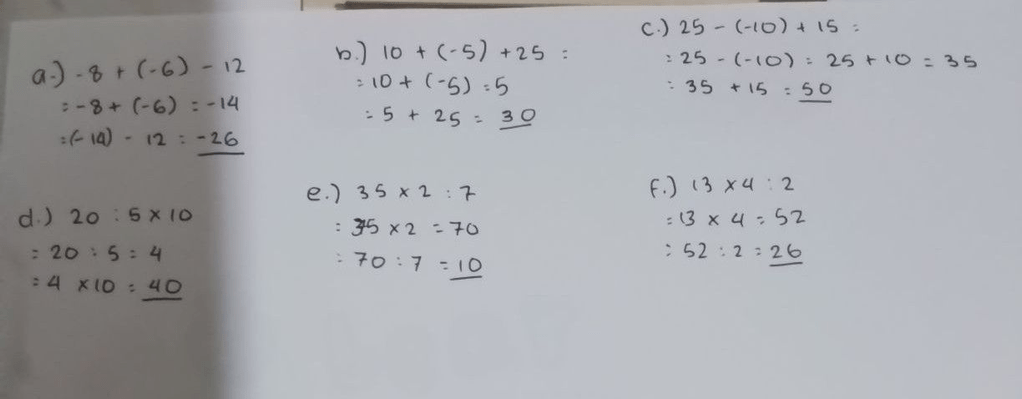 a.) -8 + (-6) - 12
= -8 + (-6) = -14
= (-14) - 12 = -26
b.) 10 + (-5) + 25 =
= 10 + (-5) = 5
= 5 + 25 = 30
c.) 25 - (-10) + 15 =
= 25 - (-10) = 25 + 10 = 35
= 35 + 15 = 50
d.) 20 : 5 x 10
= 20 : 5 = 4
= 4 x 10 = 40
e.) 35 x 2 : 7
= 35 x 2 = 70
= 70 : 7 = 10
f.) 13 x 4 : 2
= 13 x 4 = 52
= 52 : 2 = 26